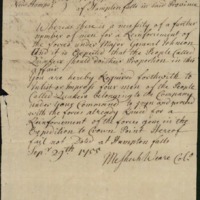 New Hampr
of Hampton falls in said Province
Whereas there is a necessity of a further
number of men for a Reinforcement of
the forces under Major General Johnson
And it is expected that the People Called
Quakers should do their Proportion in this
affair
You are hereby Required forthwith to
Inlist or impress four more of the People
Called Quakers belonging to the Company
under your Command to join and proceed
with the forces already for a
Reinforcement of the forces gone in the
Expedition to Crown Point Hereof
fail not Dated at Hampton falls
Sepr 1755
Meshech Weare Colo